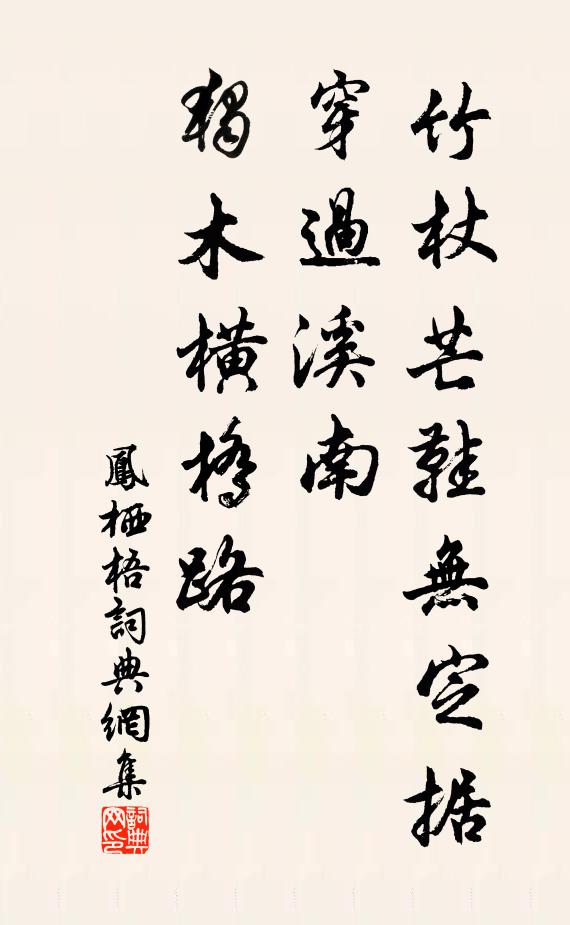 竹杖芒鞋無定据
穿過溪南
獨木橫橋路
鳳栖梧詞典網集
詞典網印